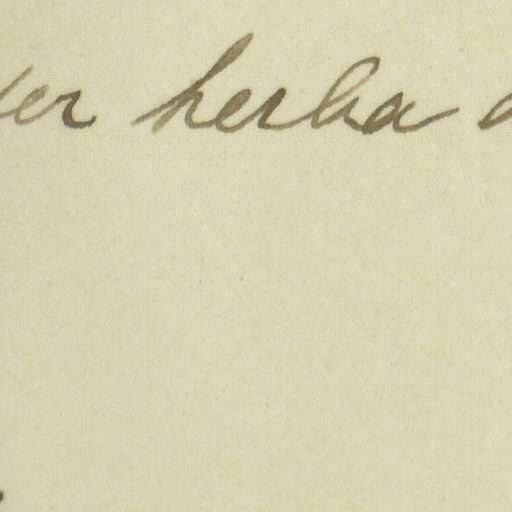 er herba